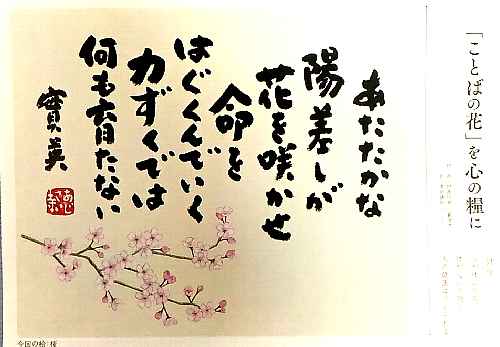 「ことばの花」を心の糧に
あたたかな
陽差しが
花を咲かせ
命を
はぐくんでいく
力ずくでは
何も育たない
實英
今回の絵 桜